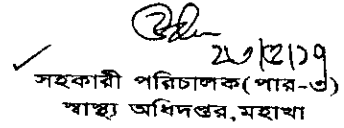 ২৩/১২/১৭
সহকারী পরিচালক(পার-৩)
স্বাস্থ্য অধিদপ্তর, মহাখা